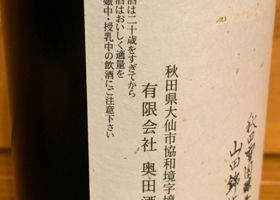 秋田県大仙市協和境字境
有限会社 奥田酒
酒は二十歳をすぎてから
酒はおいしく適量を
娠中・授乳中の飲酒にご注意下さい
山田錦